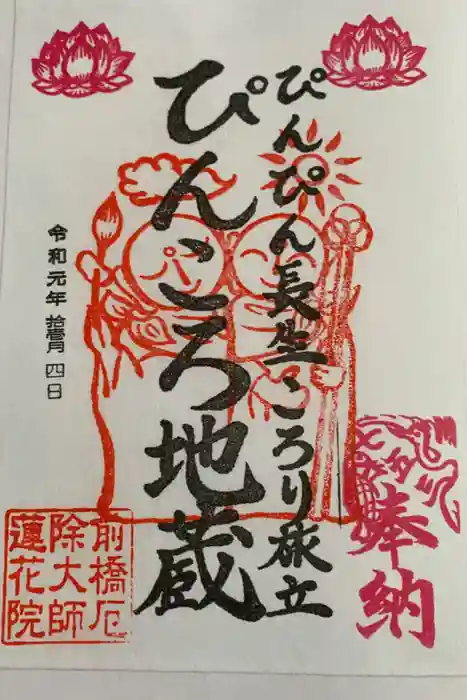 奉納
ぴんぴん長生ころり旅立
ぴんころ地蔵
令和元年 拾壱月 四日
前橋厄
除大師
蓮花院